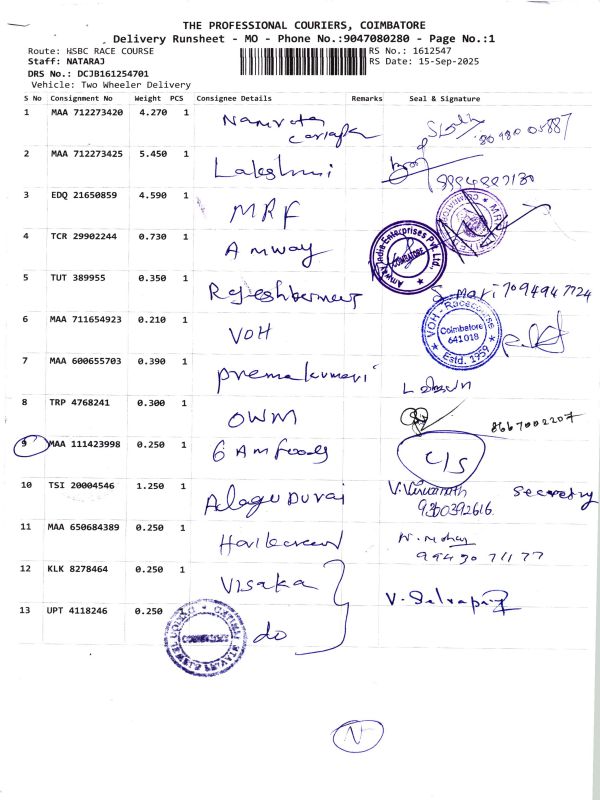 THE PROFESSIONAL COURIERS, COIMBATORE
Delivery Runsheet - MO - Phone No.:9047080280 - Page No.:1
Route: HSBC RACE COURSE RS No.: 1612547
Staff: NATARAJ RS Date: 15-Sep-2025
DRS No.: DCJB161254701
Vehicle: Two Wheeler Delivery
S No Consignment No Weight PCS Consignee Details Remarks Seal & Signature
1 MAA 712273420 4.270 1 Namrata
2 MAA 712273425 5.450 1 Lakshmi
3 EDQ 21650859 4.590 1 MRF
4 TCR 29902244 0.730 1 Amway
Amway India Enterprises Pvt. Ltd., COIMBATORE
5 TUT 389955 0.350 1 S. Mari 7094947724
6 MAA 711654923 0.210 1 VOH
VOH - Racecourse Coimbatore 641018 Estd. 1959
7 MAA 600655703 0.390 1 premakumari
8 TRP 4768241 0.300 1 OWM 8667002207
9 MAA 111423998 0.250 1 6 Am foods C/S
10 TSI 20004546 1.250 1 Alagu Durai Secretary
9360392616
11 MAA 650684389 0.250 1 N. Mohan
12 KLK 8278464 0.250 1 Visaka
13 UPT 4118246 0.250 do
N